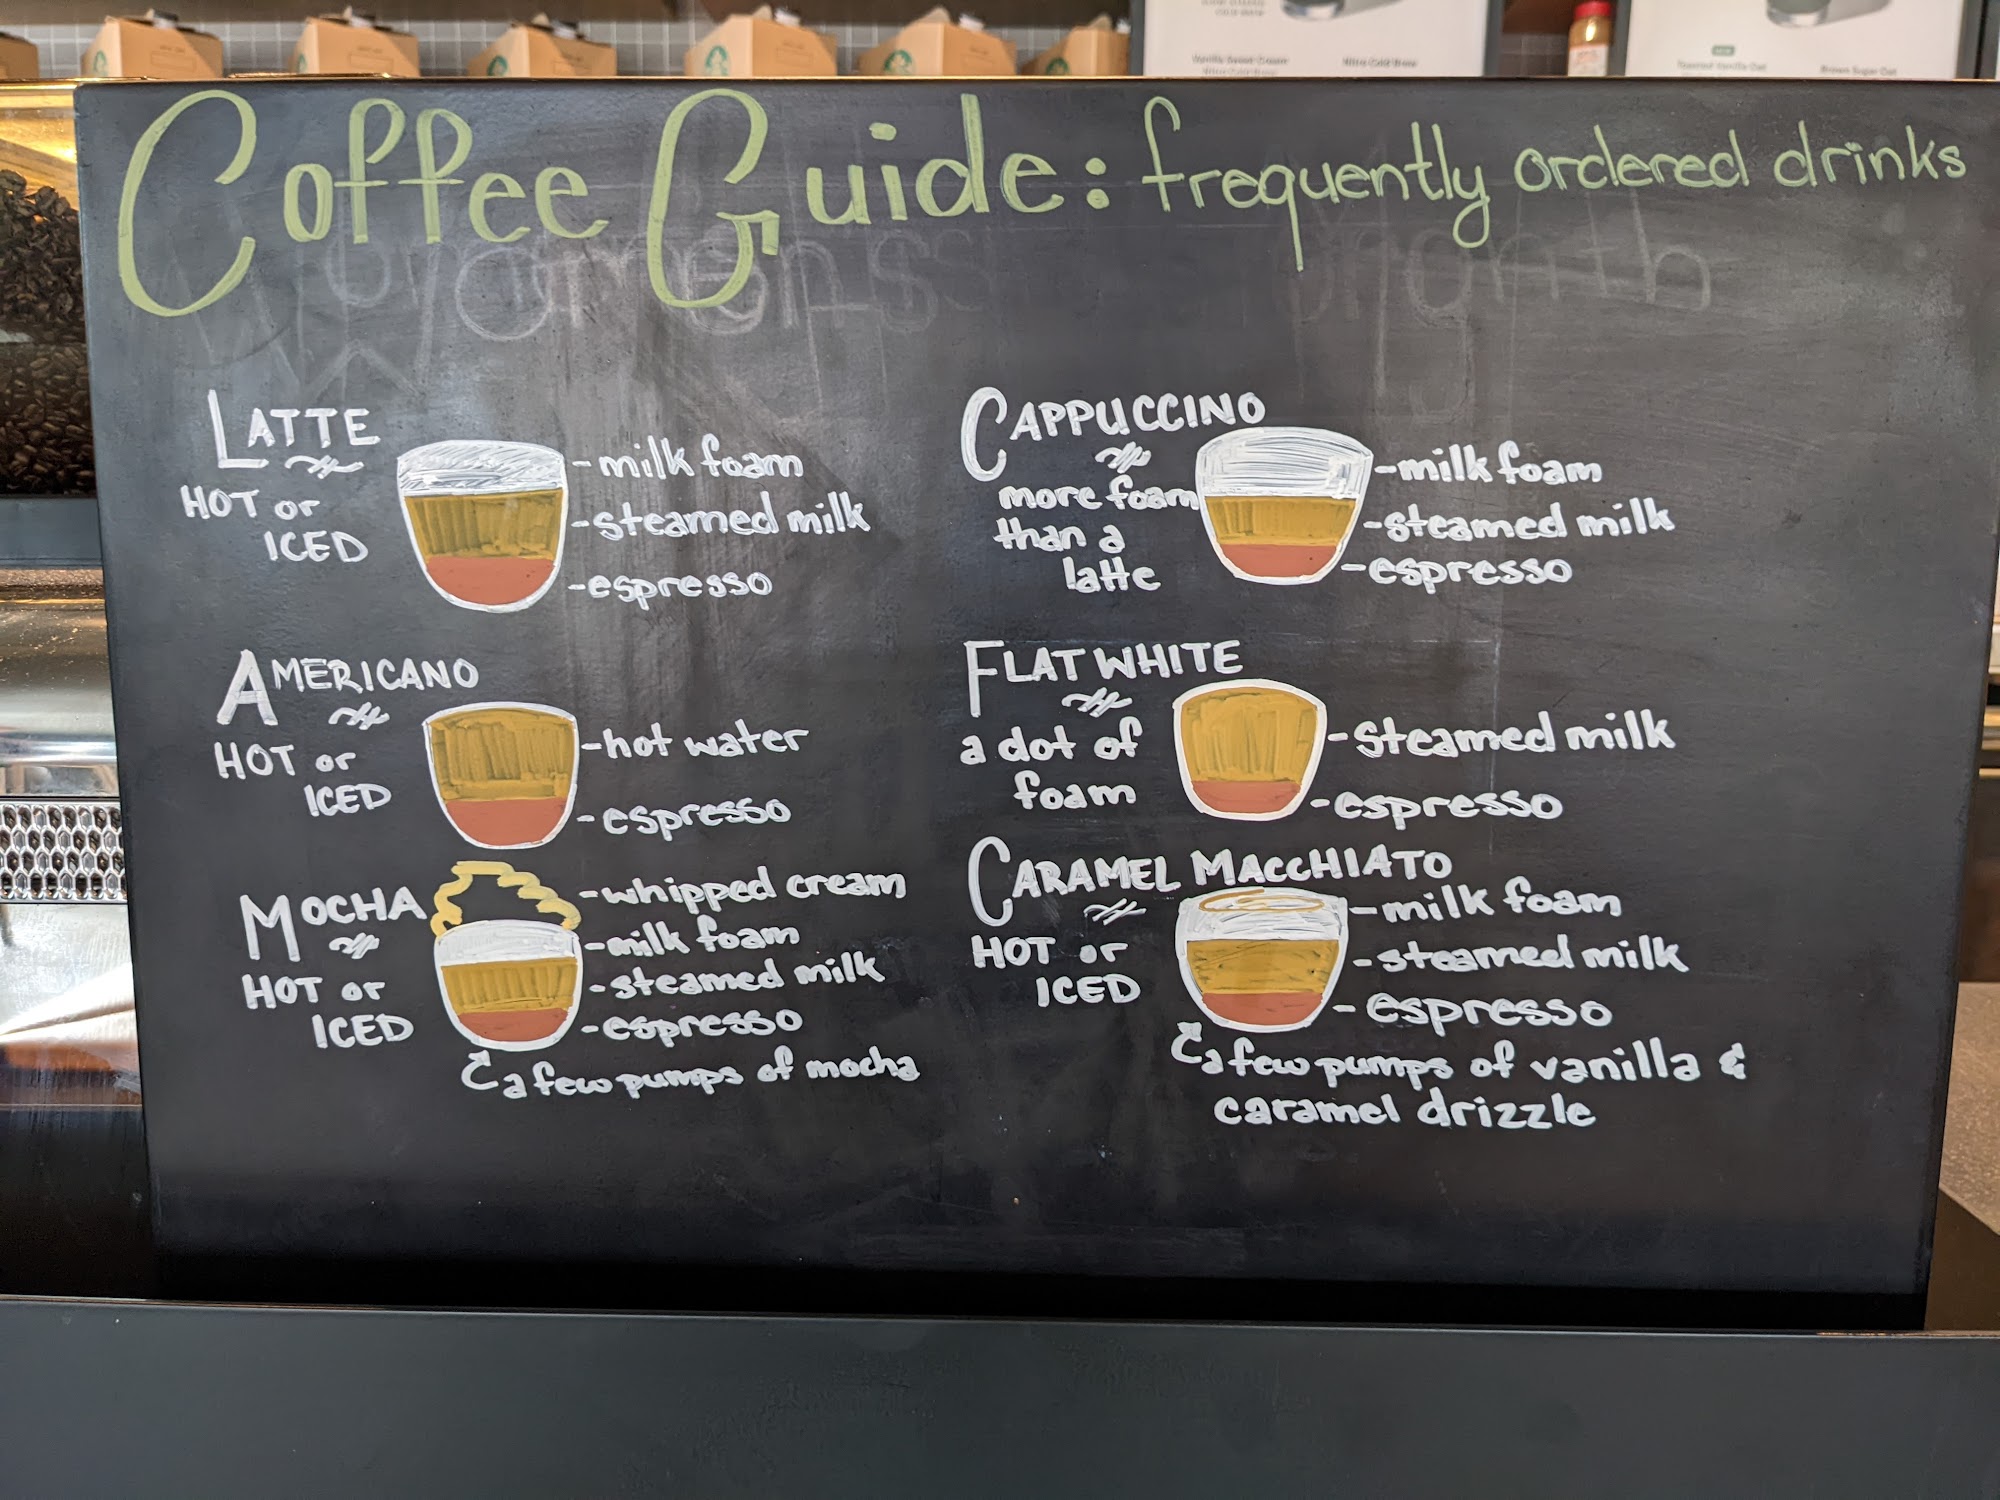 Vanilla Sweet Cream
Nitro Cold Brew
Nitro Cold Brew
Toasted Vanilla Oat
Brown Sugar Oat
Coffee Guide: frequently ordered drinks
Womens
month
LATTE
HOT or
ICED
-milk foam
-steamed milk
-espresso
CAPPUCCINO
more foam
than a
latte
-milk foam
-steamed milk
-espresso
AMERICANO
HOT or
ICED
-hot water
-espresso
FLAT WHITE
a dot of
foam
-steamed milk
-espresso
MOCHA
HOT or
ICED
-whipped cream
-milk foam
-steamed milk
-espresso
a few pumps of mocha
CARAMEL MACCHIATO
HOT or
ICED
-milk foam
-steamed milk
-espresso
a few pumps of vanilla &
caramel drizzle